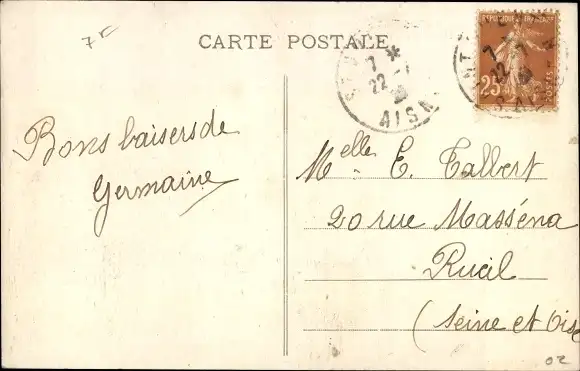 7 F
CARTE POSTALE
REPUBLIQUE FRANÇAISE
25
POSTES
7 *
22 - 7
AISNE
Bons baisers de
Germaine
Melle E. Talbert
20 rue Masséna
Rueil
(Seine et Oise
02